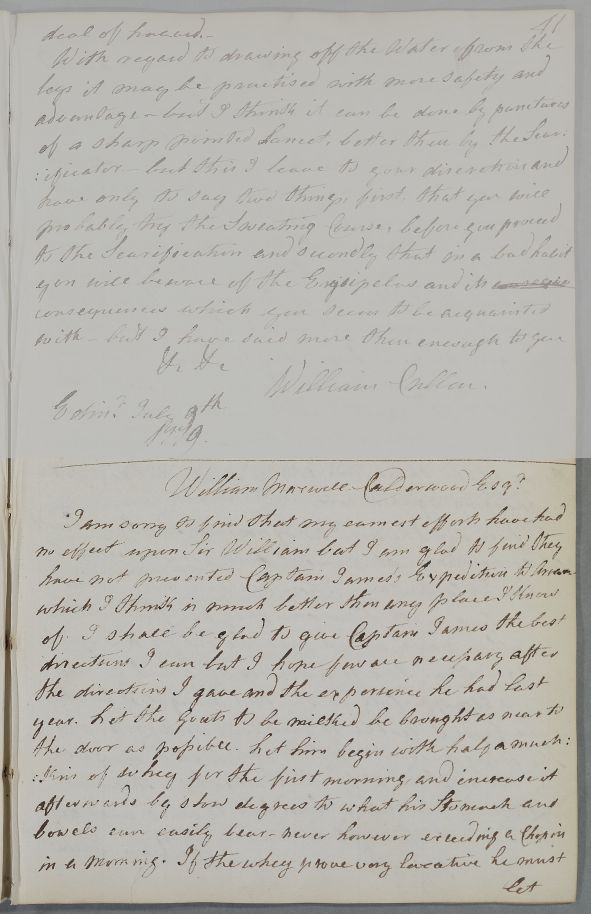 41
deal of hazard.-
With regard to drawing off the Water from the
legs it may be practised with more safety and
advantage - but I think it can be done by punctures
of a sharp pointed Lancet, better than by the Scar:
:ificator - but this I leave to your discretion and
have only to say two things, first. that you will
probably try the Sweating Course, before you proceed
to the Scarification and secondly that in a bad habit
you will beware of the Erysipelas and its
consequences which you seem to be acquainted
with - but I have said more than enough to you
&c &c
William Cullen.
Edinr. July 9th
1779.
William Maxwell Calderwood Esqr.
I am sorry to find that my earnest efforts have had
no effect upon Sir William but I am glad to find they
have not prevented Captain James's Expedition to Arran
which I think is much better than any place I know
of. I shall be glad to give Captain James the best
directions I can but I hope few are necessary after
the directions I gave and the experience he had last
year. Let the Goats to be milked be brought as near to
the door as possible. Let him begin with half a much:
:kin of whey for the first morning and increase it
afterwards by slow degrees to what his Stomach and
bowels can easily bear - never however exceeding a Chopin
in a morning. If the whey prove very laxative he must
let